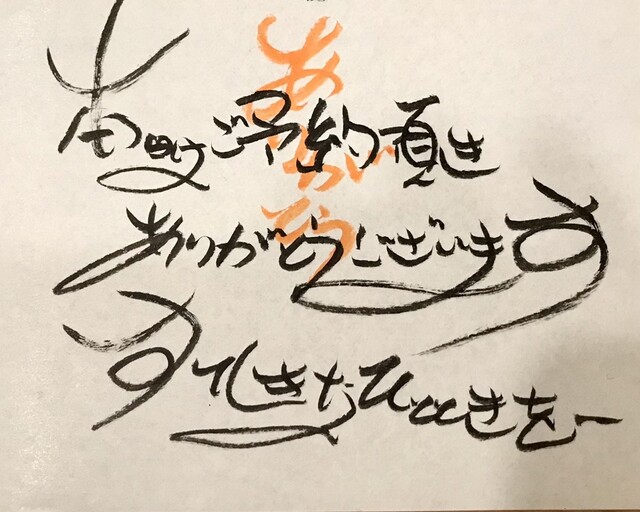 ご予約頂き
ありがとうございます
すてきなひとときを